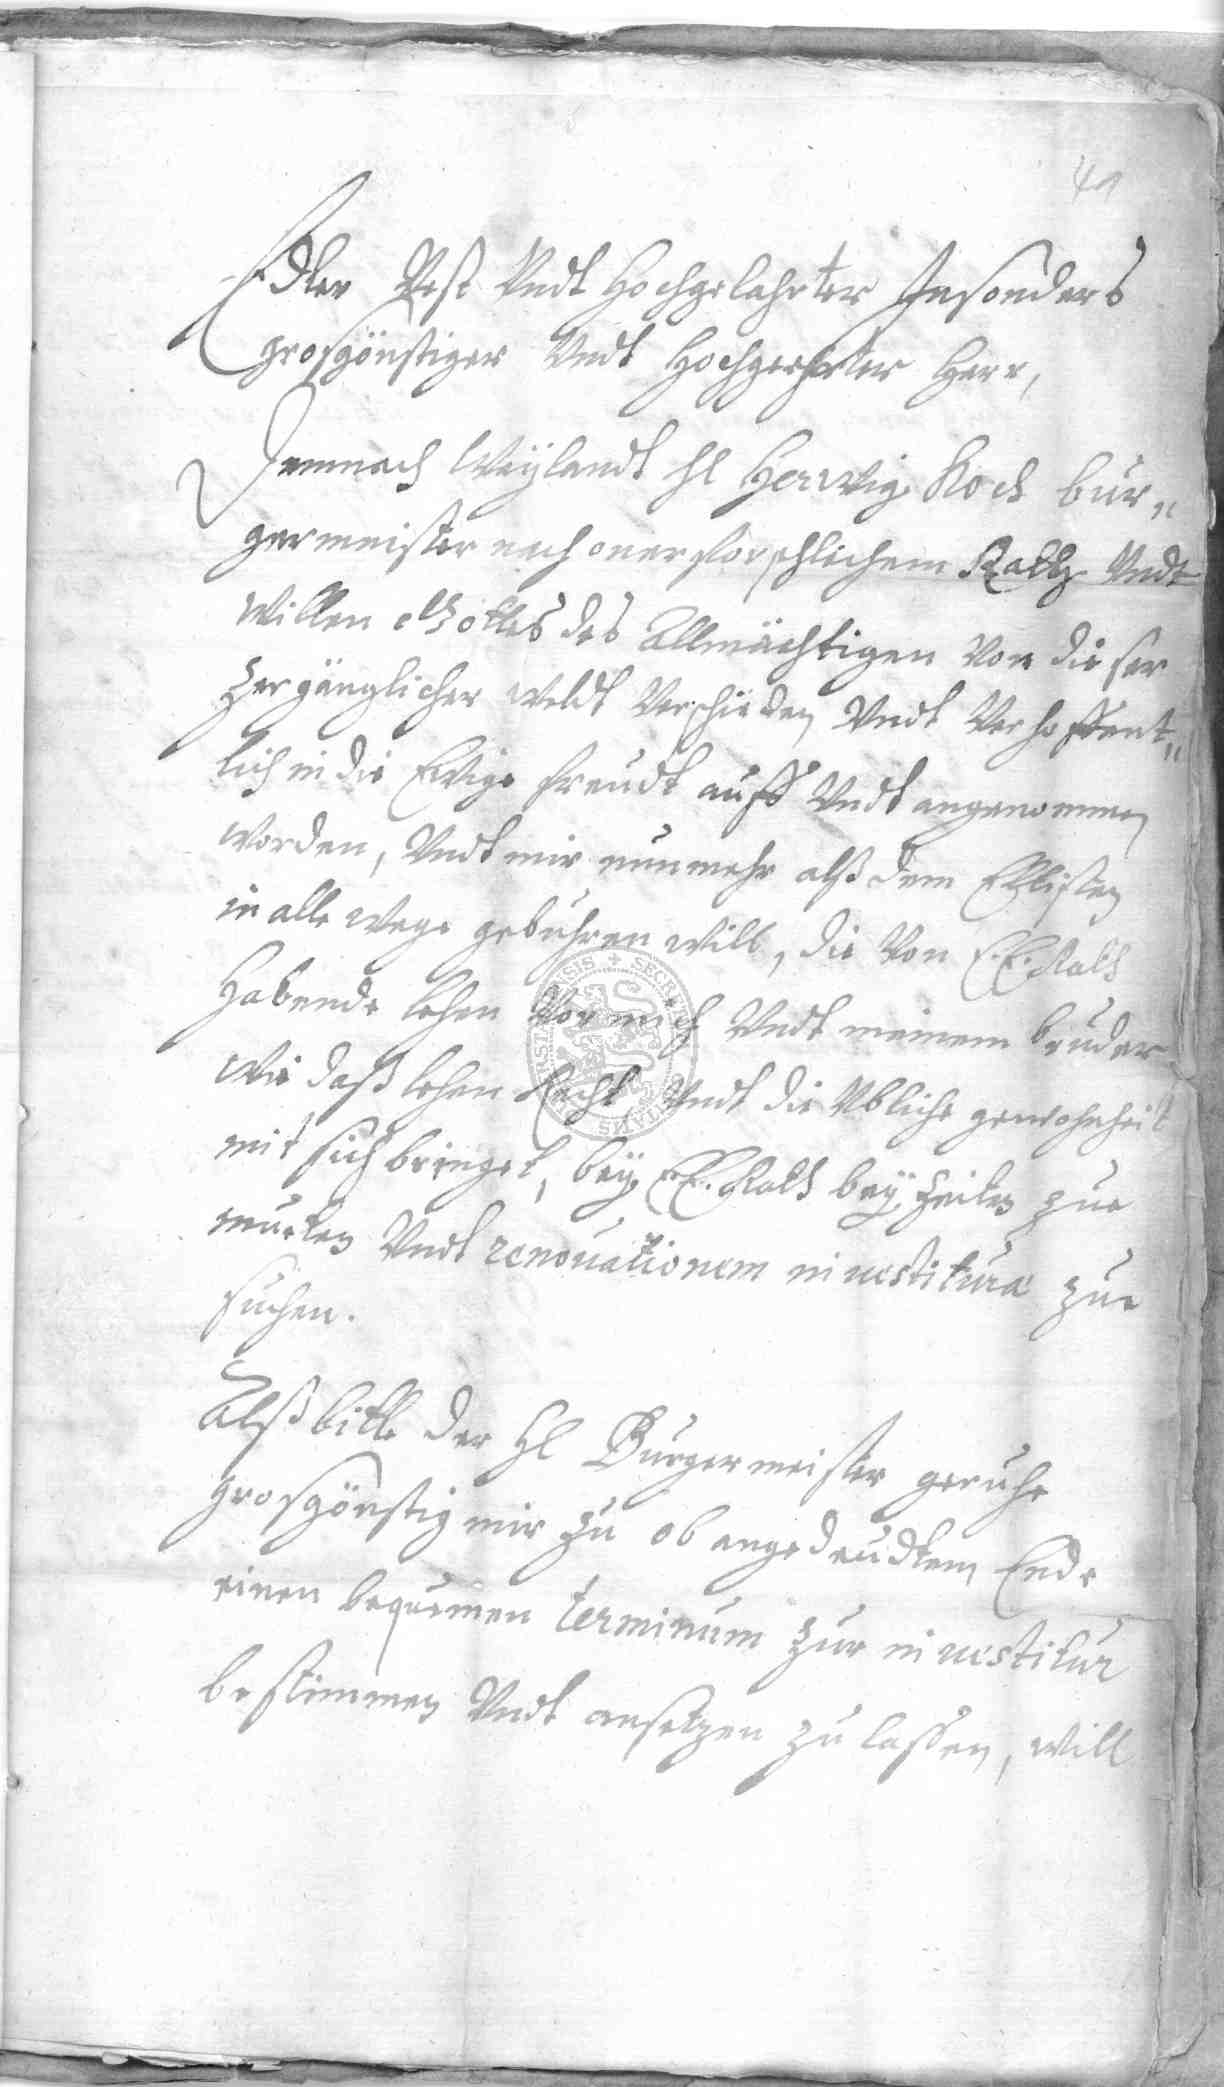 41
Edler Vest Vndt Hochgelahrter Insonders
grosgönstiger Vndt Hochgeehrter Herr,
Demnach Weÿlandt hl Herwig Kock bur„
germeister nach onerforschlichem Rath Vndt
willen Gottes des Allmächtigen Von dieser
Zergänglicher weldt Verschieden Vndt Verhoffent„
lich in die Ewige freudt auff Vndt angenommen
worden, Vndt mir nunmehr alß dem Eltisten
in alle wege gebühren will, die Von E. E. Rath
habende lehen Vor mich Vndt meinem bruder
wie daß lehen Recht Vndt die Vbliche gewohnheit
mit sich bringet, beÿ E. E. Rath beÿ Zeiten zue
muten Vndt renouationem inuestituræ zue
suchen.
Alß bitte der hl Burgermeister geruhe
grosgönstig mir zu ob angedeudtem Ende
einen bequemen terminum zur inuestitur
bestimmen Vndt ansetzen zu lassen, will
SECRETUM